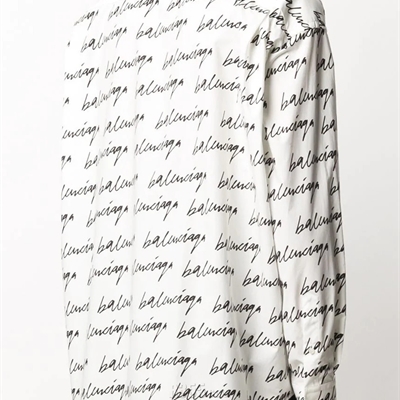 balenciaga balenciaga balenciaga
balenciaga balenciaga balenciaga
balenciaga balenciaga balenciaga
balenciaga balenciaga balenciaga
balenciaga balenciaga balenciaga
balenciaga balenciaga balenciaga
balenciaga balenciaga balenciaga
balenciaga balenciaga balenciaga
balenciaga balenciaga balenciaga
balenciaga balenciaga balenciaga
balenciaga balenciaga balenciaga
balenciaga balenciaga balenciaga
balenciaga balenciaga balenciaga